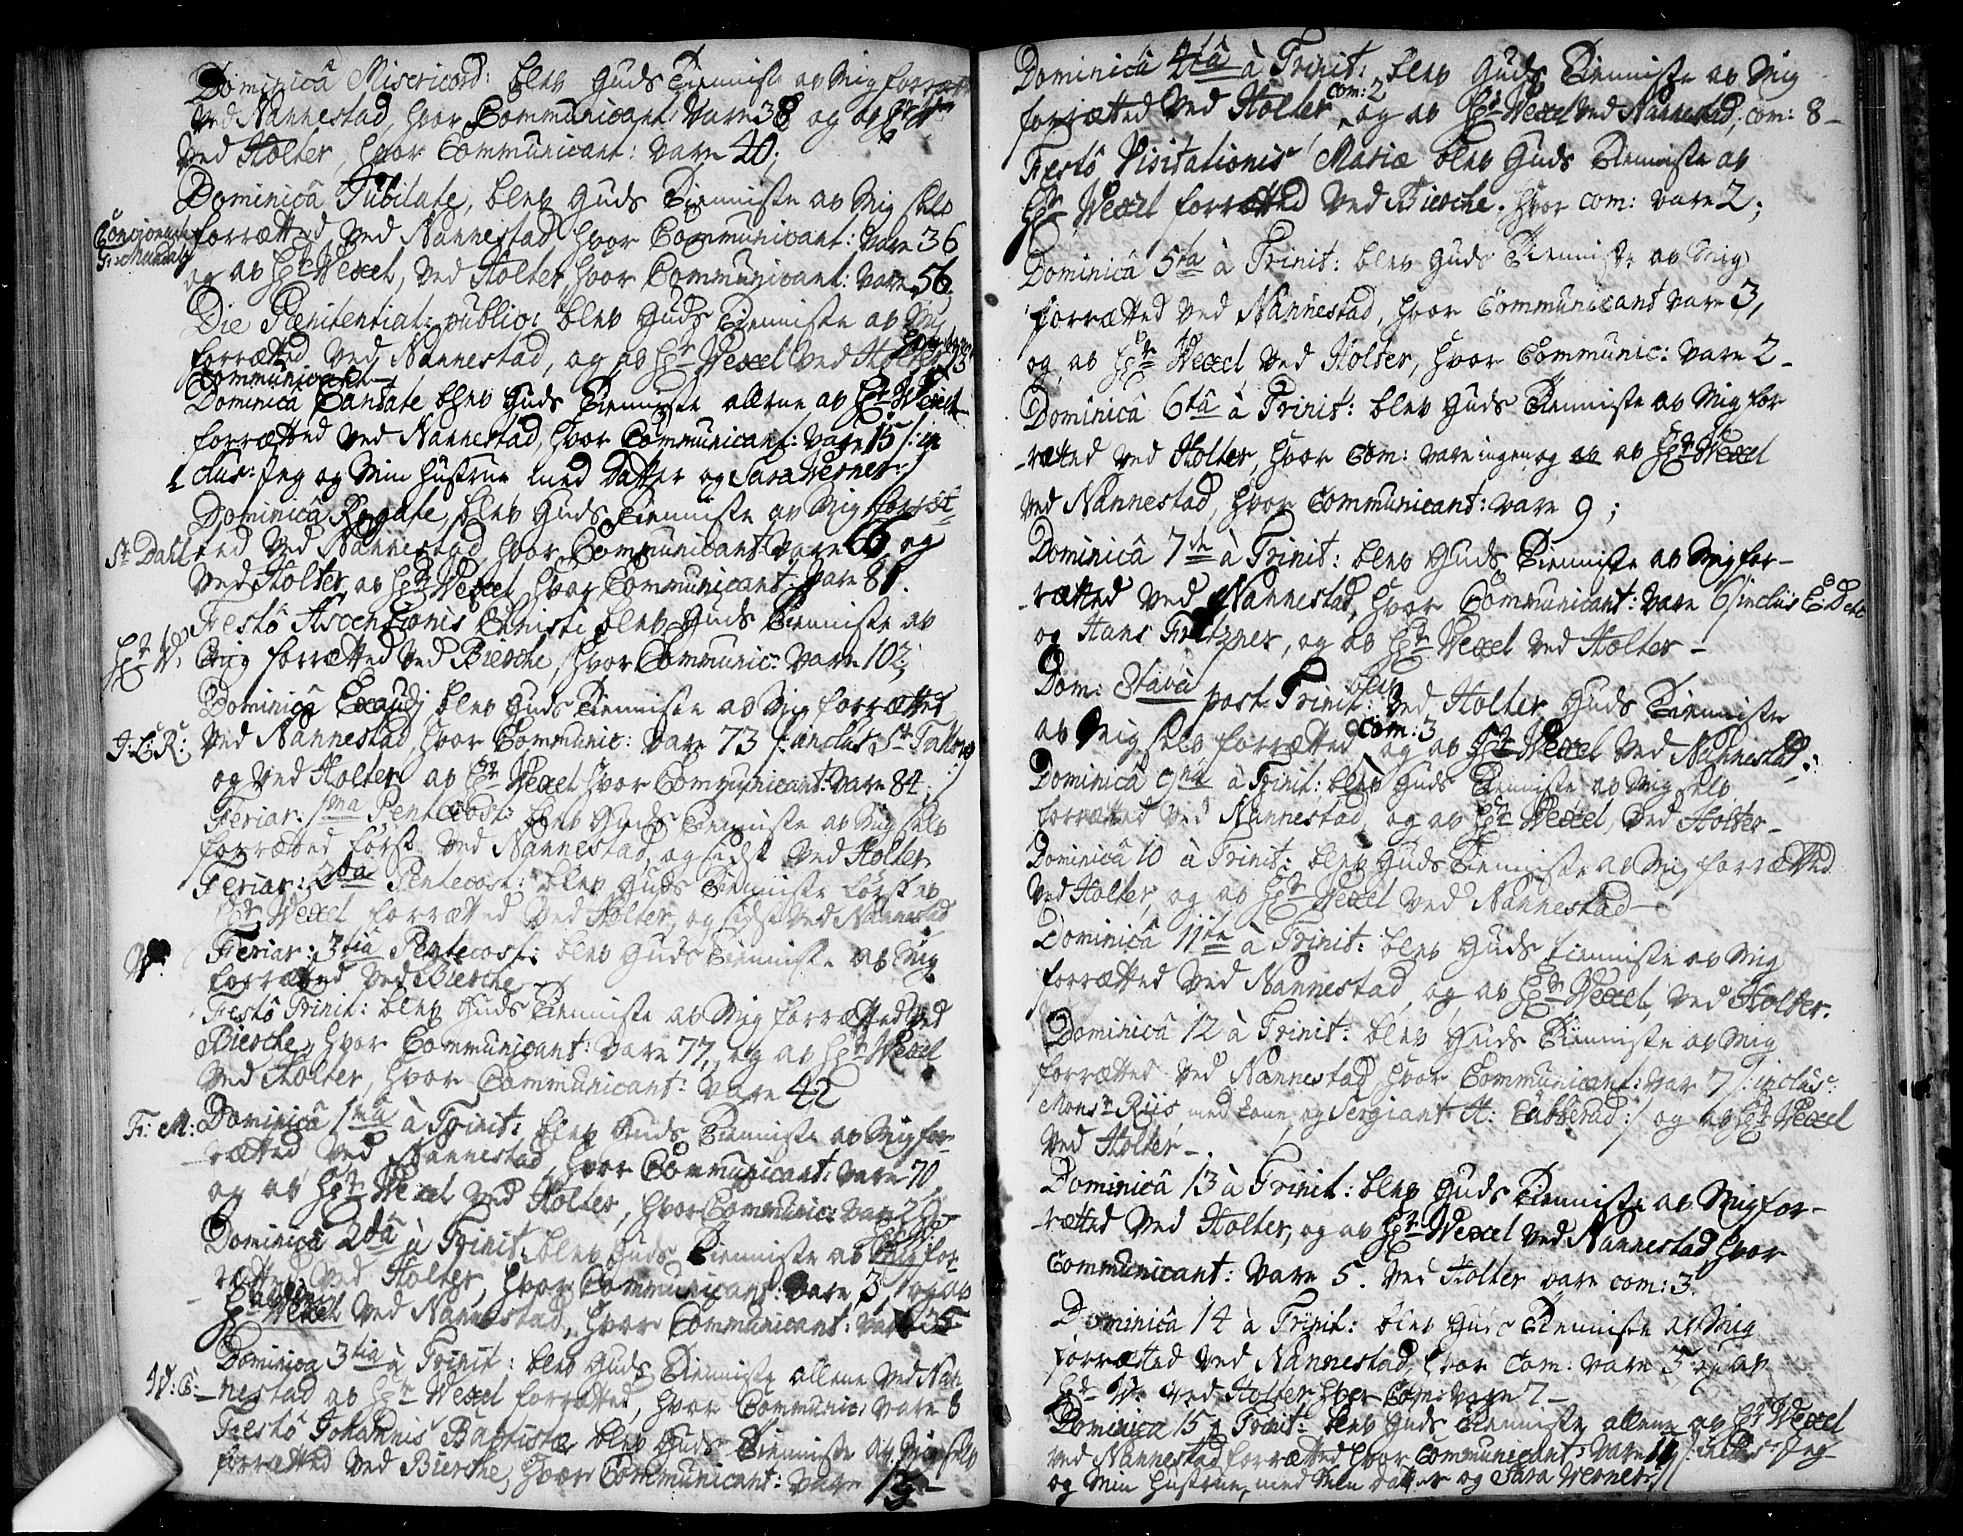 Dominicâ Misericord: blev Guds Tienniste av Mig forrætt
ved Nannestad, hvor Communicant vare 38 og av Hr W
ved Holter, hvor Communicant: vare 40;
Dominicâ Jubilate, blev Guds Tienniste av Mig selv
forrætted ved Nannestad hvor Communicant: vare 36
og av Hr Wexel, ved Holter, hvor Communicant: vare 56
Die Poenitential: public: blev Guds Tienniste av Mig
forrætted ved Nannestad, og av Hr Wexel ved Holter
Communicant
Dominicâ Cantate blev Guds Tienniste allene av Hr Wexel
forrætted ved Nannestad, hvor Communicant: vare 15 /: in
clus: Jeg og Min Hustrue med Datter og Sara Werner :/
Dominicâ Rogate, blev Guds Tienniste av Mig forræt
St. Dahl ted ved Nannestad, hvor Communicant vare 66 og
ved Holter av Hr Wexel, hvor Communicant: vare 81.
Festô Ascentionis Christi blev Guds Tienniste av
Hr W. Mig forrætted ved Biersche, hvor Communic: vare 102;
Dominicâ Exaudj blev Guds Tienniste av Mig forrætted
J: L: R: ved Nannestad, hvor Communic: vare 73 /: inclus. St
og ved Holter av Hr Wexel hvor Communicant: vare 84;
Feriar: 1ma Pentecost: blev Guds Tienniste av Mig selv
forrætted först ved Nannestad, og sidst ved Holter
Feriar: 2da Pentecost: blev Guds Tienniste först av
Hr Wexel forrætted ved Holter, og sidst ved Nannestad
Feriar: 3tiâ Pentecost: blev Guds Tienniste av Mig
forrætted ved Biersche
Festô Trinit: blev Guds Tienniste av Mig forrætted ved
Biersche, hvor Communicant: vare 77, og av Hr Wexel
ved Holter, hvor Communicant: vare 42
Fr: M: Dominicâ 1mâ à Trinit: blev Guds Tienniste av Mig for-
rætted ved Nannestad, hvor Communicant: vare 70
og av Hr Wexel ved Holter, hvor Communic: vare
Dominicâ 2dâ à Trinit: blev Guds Tienniste av Mig for-
rætted ved Holter, hvor Communicant: vare 3, og av
Hr Wexel ved Nannestad, hvor Communicant: vare 35
Dominica 3tiâ à Trinit: blev Guds Tienniste allene ved Nan
nestad av Hr Wexel forrætted, hvor Communic: vare 8
Festô Johannis Baptistæ blev Guds Tienniste av Mig selv
forrætted ved Biersche, hvor Communicant: vare
Dominicâ 4tâ à Trinit: blev Guds Tienniste av Mig
forrætted ved Holter com: 2 og av Hr Wexel ved Nannestad, com: 8 -
Festô Visitationis Mariæ blev Guds Tienniste av
Hr Wexel forrætted ved Biersche. hvor com: vare 2;
Dominicâ 5ta à Trinit: blev Guds Tienniste av Mig
forrætted ved Nannestad, hvor Communicant vare 3,
og av Hr Wexel ved Holter, hvor Communic: vare 2 -
Dominicâ 6tâ à Trinit: blev Guds Tienniste av Mig for
-rætted ved Holter, hvor Com: vare ingen, og av av Hr Wexel
ved Nannestad, hvor Communicant: vare 9;
Dominicâ 7de à Trinit: blev Guds Tienniste av Mig for-
-rætted ved Nannestad, hvor Communicant: vare 6 /: inclus
og Hans Fritzner, og av Hr Wexel ved Holter -
Dom: 8tava post Trinit: blev ved Holter Guds Tienniste
av Mig selv forrætted com: 3 og av Hr Wexel ved Nannestad;
Dominicâ 9na à Trinit: blev Guds Tienniste av Mig selv
forrætted ved Nannestad, og av Hr Wexel, ved Holter -
Dominicâ 10 à Trinit: blev Guds Tienniste av Mig forrætted
ved Holter, og av Hr Wexel ved Nannestad -
Dominicâ 11te à Trinit: blev Guds Tienniste av Mig
forrætted ved Nannestad, og av Hr Wexel, ved Holter.
Dominicâ 12 à Trinit: blev Guds Tienniste av Mig
forrætted ved Nannestad, hvor Communicant: var 7 /: inclus:
Monsr Riis, med kone, og Sergiant A: :/ og av Hr Wexel
ved Holter -
Dominicâ 13 à Trinit: blev Guds Tienniste av Mig for-
-rætted ved Holter, og av Hr Wexel ved Nannestad, hvor
Communicant: vare 5. ved Holter vare com: 3.
Dominicâ 14 à Trinit: blev Guds Tienniste av Mig
forrætted ved Nannestad, hvor Com: vare 5 og av
Hr W: ved Holter, hvor Com: vare 7 -
Dominica 15 à Trinit: blev Guds Tienniste allene av Hr Wexel
ved Nannestad forrætted, hvor Communicant: vare 11 /: inclus: Jeg
og Min Hustrue, med Men Datter og Sara Werner :/